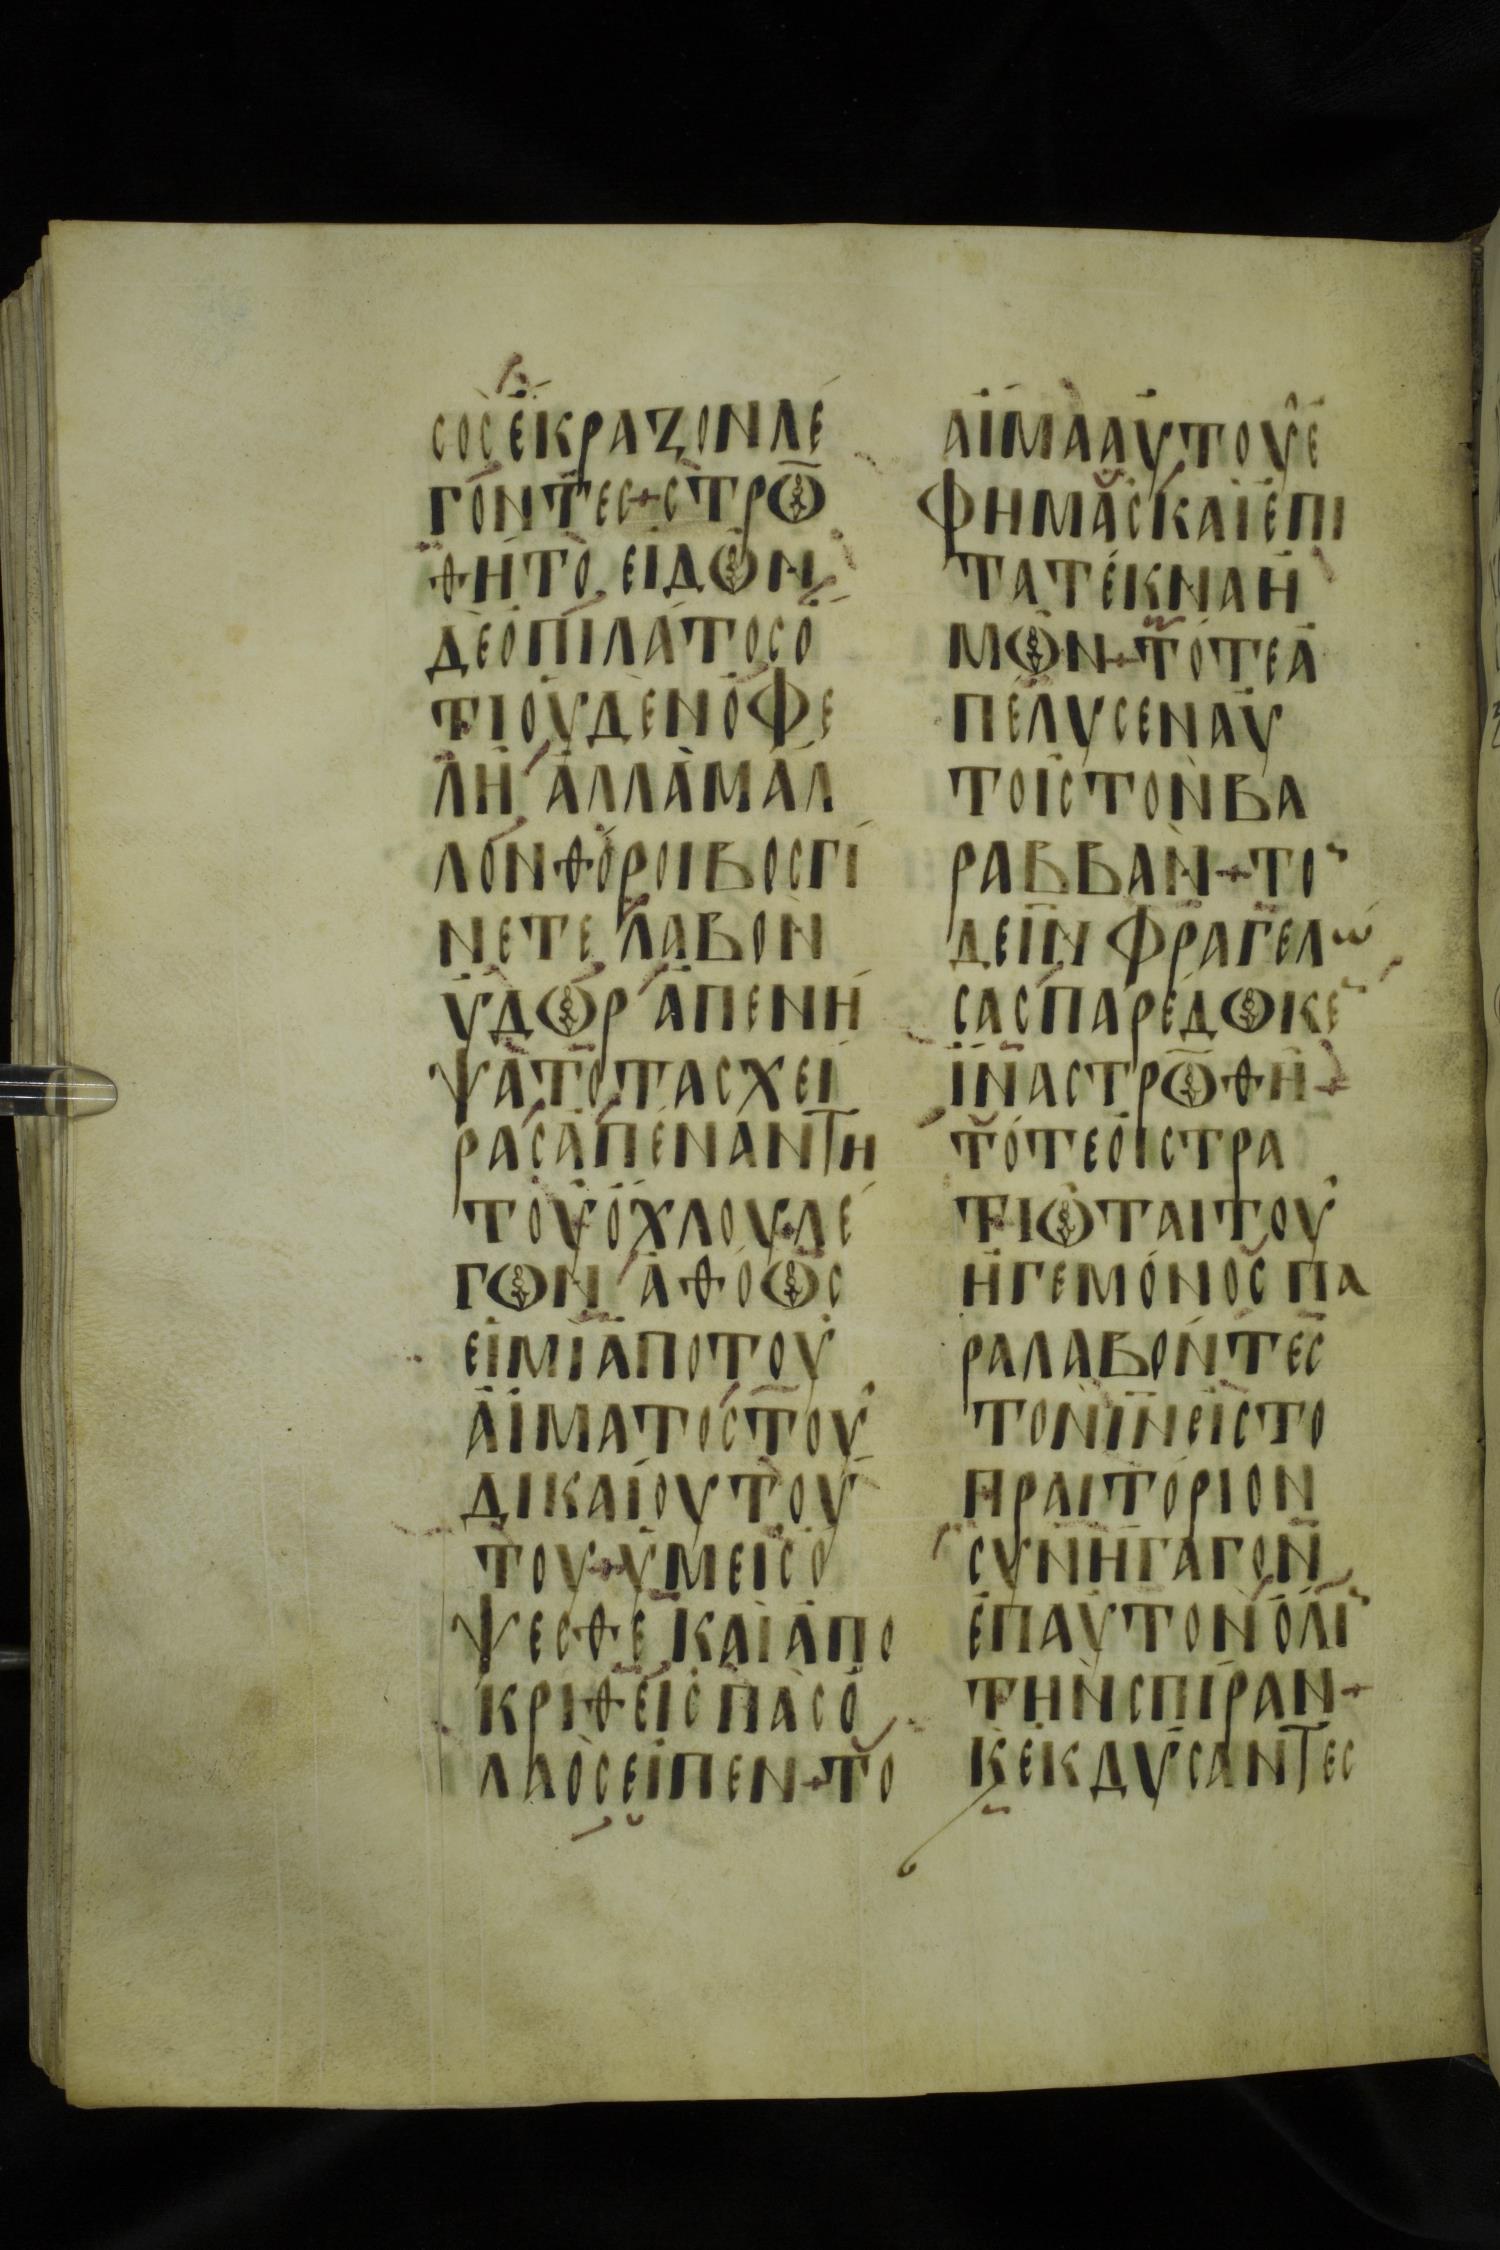 σοσἐκραζονλέ
γόντες+στρω̅
θήτὸ εἰδὼν
δὲὁπιλάτοσὅ
τιοὐδὲνὀφε
λῆ ἀλλὰμᾶλ
λονθόροιβοσγί
νετε λαβὼν
ὕδωρ ἀπενή
ψἁτοτασχεῖ
ράσἀπέναντη
τοῦὄχλου+λέ
γων ἀθόῶς
εἰμὶἀποτοῦ
ἅίματοστοῦ
δικαίουτού
του+ὑμεῖσὄ
ψεσθε καὶἀπο
κριθεὶς πᾶσὁ
λαὸσεἶπεν+τὸ
αἷμααὐτοῦἐ
φημᾶσκαὶἐπι
τατέκναἡ
μῶν+τότεἀ
πέλυσεναὐ
τοῖστονβα
ραββὰν+το
δεῖν φραγελω
σασπαρέδωκε
ἵναστρω̅θῆ+
τότεὁιστρα
τιῶταιτοῦ
ἡγεμόνος πα
ραλαβόντες
τονιν̅εἰστο
πραιτόριον
συνήγαγον
ἐπαὐτὸνὅλι
τὴνσπῖραν+
κ̀ἐκδύσαντες